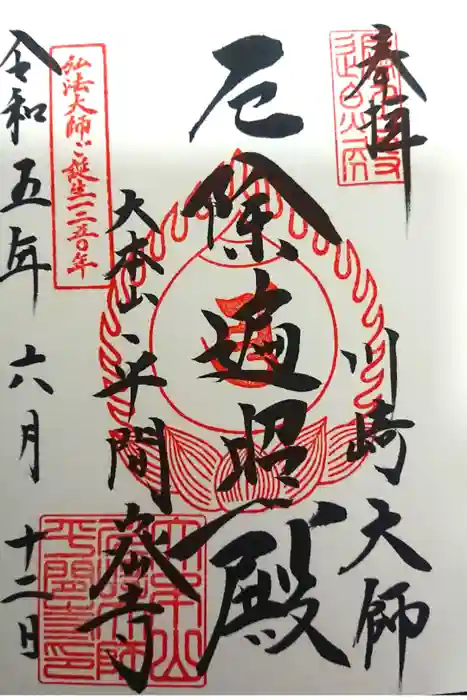 奉拝
川崎大師
厄除遍照殿
大本山、平間寺
弘法大師ご誕生一二五〇年
令和五年六月十二日